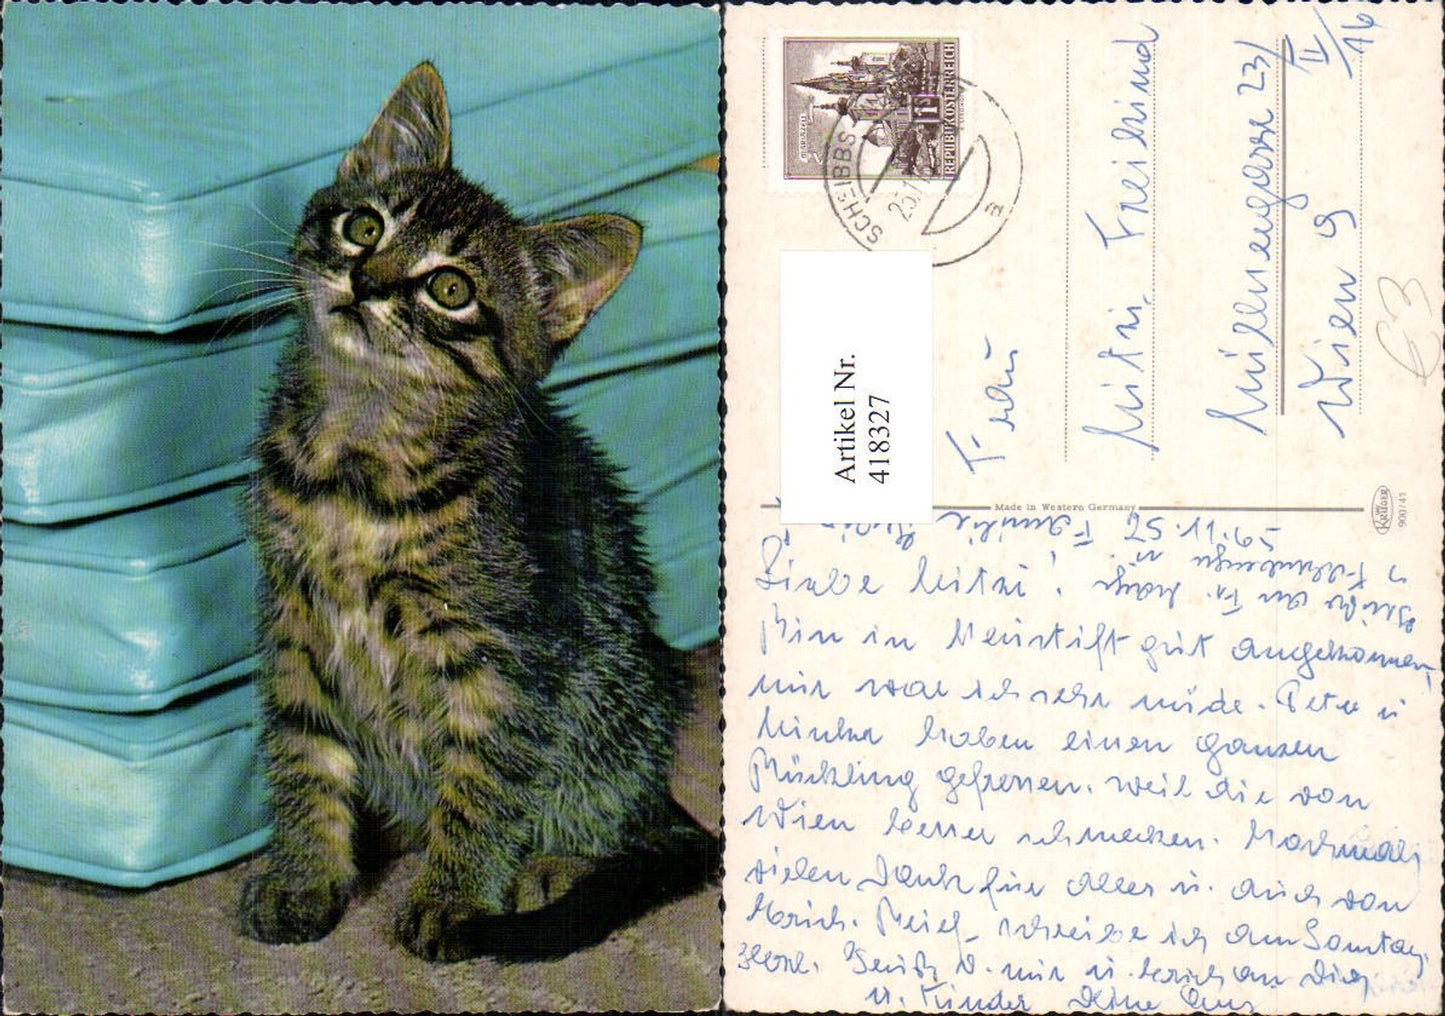 REPUBLIK ÖSTERREICH
MARIAZELL
1
SCHEIBBS
Artikel Nr.
418327
Frau
Mitzi Freilind
Müllnergasse 23/
II/16
Wien 9
€3
Made in Western Germany
KRÜGER
900/41
Familie
Liebe Mitzi!
Bin in Neustift gut angekommen,
nur war ich sehr müde. Peter u
Minka haben einen ganzen
Bückling gefressen. weil die von
Wien besser schmecken. Nochmals
vielen Dank für alles u. auch von
Brief schreibe ich am Sonntag.
Herzl. v. mir u. an Dich
u. Kinder Deine